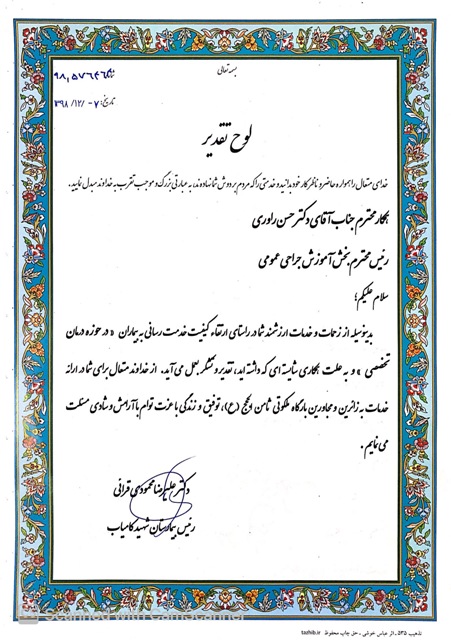 بسمه تعالی
۹۸,۵۷۶۴۶
تاریخ: ۱۳۹۸/۱۲/۰۷
لوح تقدیر
خدای متعال را همواره حاضر و ناظر کار خود بدانید و خدمتی را که مردم بر دوش شما نهاده‌اند، به عبارتی بزرگ و موجب تقرب به خداوند مبدل نمایید.
همکار محترم جناب آقای دکتر حسن راوری
رئیس محترم بخش آموزش جراحی عمومی
سلام علیکم؛
بدینوسیله از زحمات و خدمات ارزشمند شما در راستای ارتقاء کیفیت خدمت رسانی به بیماران « در حوزه درمان
تخصصی » و به علت همکاری شایسته ای که داشته اید، تقدیر و تشکر بعمل می آید. از خداوند متعال برای شما در ارائه
خدمات به زائرین و مجاورین بارگاه ملکوتی ثامن الحجج (ع)، توفیق و زندگی با عزت توام با آرامش و شادی مسئلت
می نمایم.
دکتر علیرضا محمودی قرائی
رئیس بیمارستان شهید کامیاب
Scanned with CamScanner
تذهیب ۵۳۵ ـ اثر عباس خوشی ـ حق چاپ محفوظ tazhib.ir